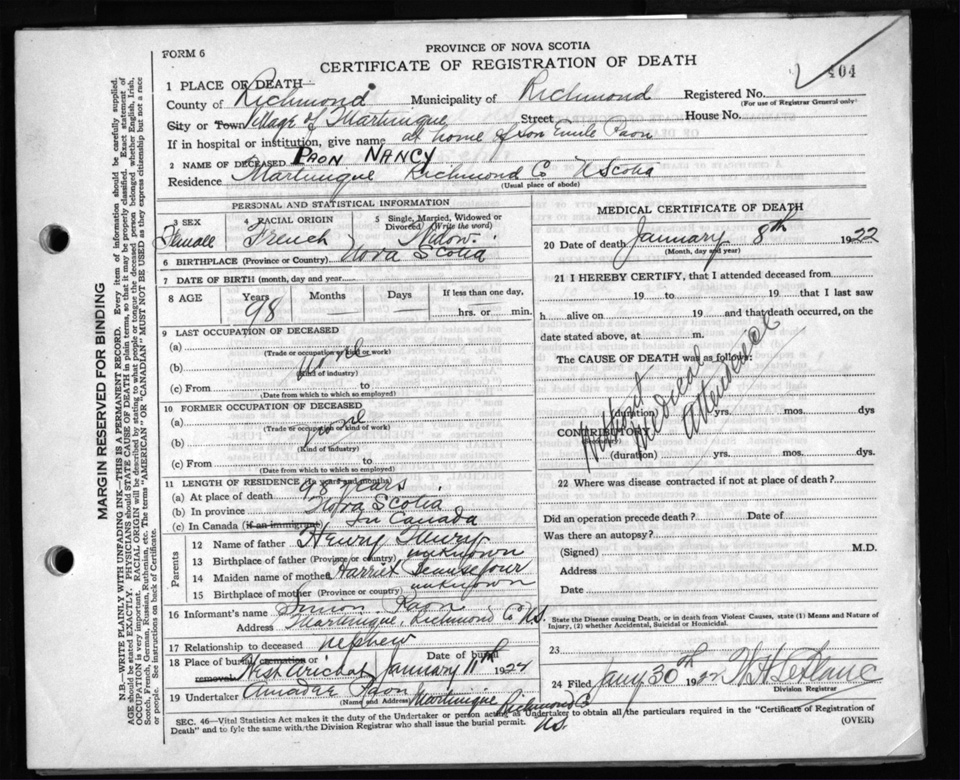 FORM 6
PROVINCE OF NOVA SCOTIA
CERTIFICATE OF REGISTRATION OF DEATH
404
1 PLACE OF DEATH
County of Richmond Municipality of Richmond Registered No.
(For use of Registrar General only)
City or Town Village of Martinique Street House No.
If in hospital or institution, give name at home of son Emile Paon
2 NAME OF DECEASED PAON NANCY
Residence Martinique Richmond Co N Scotia
(Usual place of abode)
PERSONAL AND STATISTICAL INFORMATION
3 SEX 4 RACIAL ORIGIN 5 Single, Married, Widowed or Divorced (Write the word)
Female French Widow.
6 BIRTHPLACE (Province or Country) Nova Scotia
7 DATE OF BIRTH (month, day and year)
8 AGE Years Months Days If less than one day,
98 — — hrs. or min.
9 LAST OCCUPATION OF DECEASED
(a)
(Trade or occupation or kind of work)
(b) none
(Kind of industry)
(c) From to
(Date from which to which so employed)
10 FORMER OCCUPATION OF DECEASED
(a)
(Trade or occupation or kind of work)
(b) none
(Kind of industry)
(c) From to
(Date from which to which so employed)
11 LENGTH OF RESIDENCE (In years and months)
(a) At place of death 98 years
(b) In province Nova Scotia
(c) In Canada (if an immigrant) In Canada
Parents
12 Name of father Henry
13 Birthplace of father (Province or country) unknown
14 Maiden name of mother Harriet
15 Birthplace of mother (Province or country) unknown
16 Informant's name Simon Paon
Address Martinique, Richmond Co N.S.
17 Relationship to deceased nephew
18 Place of burial, cremation or removal Date of burial
West Arichat January 11th 1922
19 Undertaker Amadee Paon Martinique Richmond Co N.S.
(Name and Address)
MEDICAL CERTIFICATE OF DEATH
20 Date of death January 8th 1922
(Month, day and year)
21 I HEREBY CERTIFY, that I attended deceased from
19 to 19 that I last saw
h alive on 19 and that death occurred, on
date stated above, at m.
The CAUSE OF DEATH was as follows:
Without Medical Attendance
(duration) yrs. mos. dys
CONTRIBUTORY
(Secondary)
(duration) yrs. mos. dys.
22 Where was disease contracted if not at place of death?
Did an operation precede death? Date of
Was there an autopsy?
(Signed) M.D.
Address
Date
State the Disease causing Death, or in death from Violent Causes, state (1) Means and Nature of
Injury, (2) whether Accidental, Suicidal or Homicidal.
23
24 Filed Jany 30th 1922 W H LeBlanc
Division Registrar
SEC. 46—Vital Statistics Act makes it the duty of the Undertaker or person acting as Undertaker to obtain all the particulars required in the "Certificate of Registration of
Death" and to fyle the same with the Division Registrar who shall issue the burial permit.
(OVER)
MARGIN RESERVED FOR BINDING
N.B.—WRITE PLAINLY WITH UNFADING INK—THIS IS A PERMANENT RECORD. Every item of information should be carefully supplied.
AGE should be stated EXACTLY. PHYSICIANS should STATE CAUSE OF DEATH in plain terms, so that it may be properly classified. Exact statement of
OCCUPATION is very important. RACIAL ORIGIN will be described by stating to what people or tongue the deceased person belonged whether English, Irish,
Scotch, French, German, Russian, Ruthenian, etc. The terms "AMERICAN" OR "CANADIAN" MUST NOT BE USED as they express citizenship but not a race
or people. See instructions on back of Certificate.